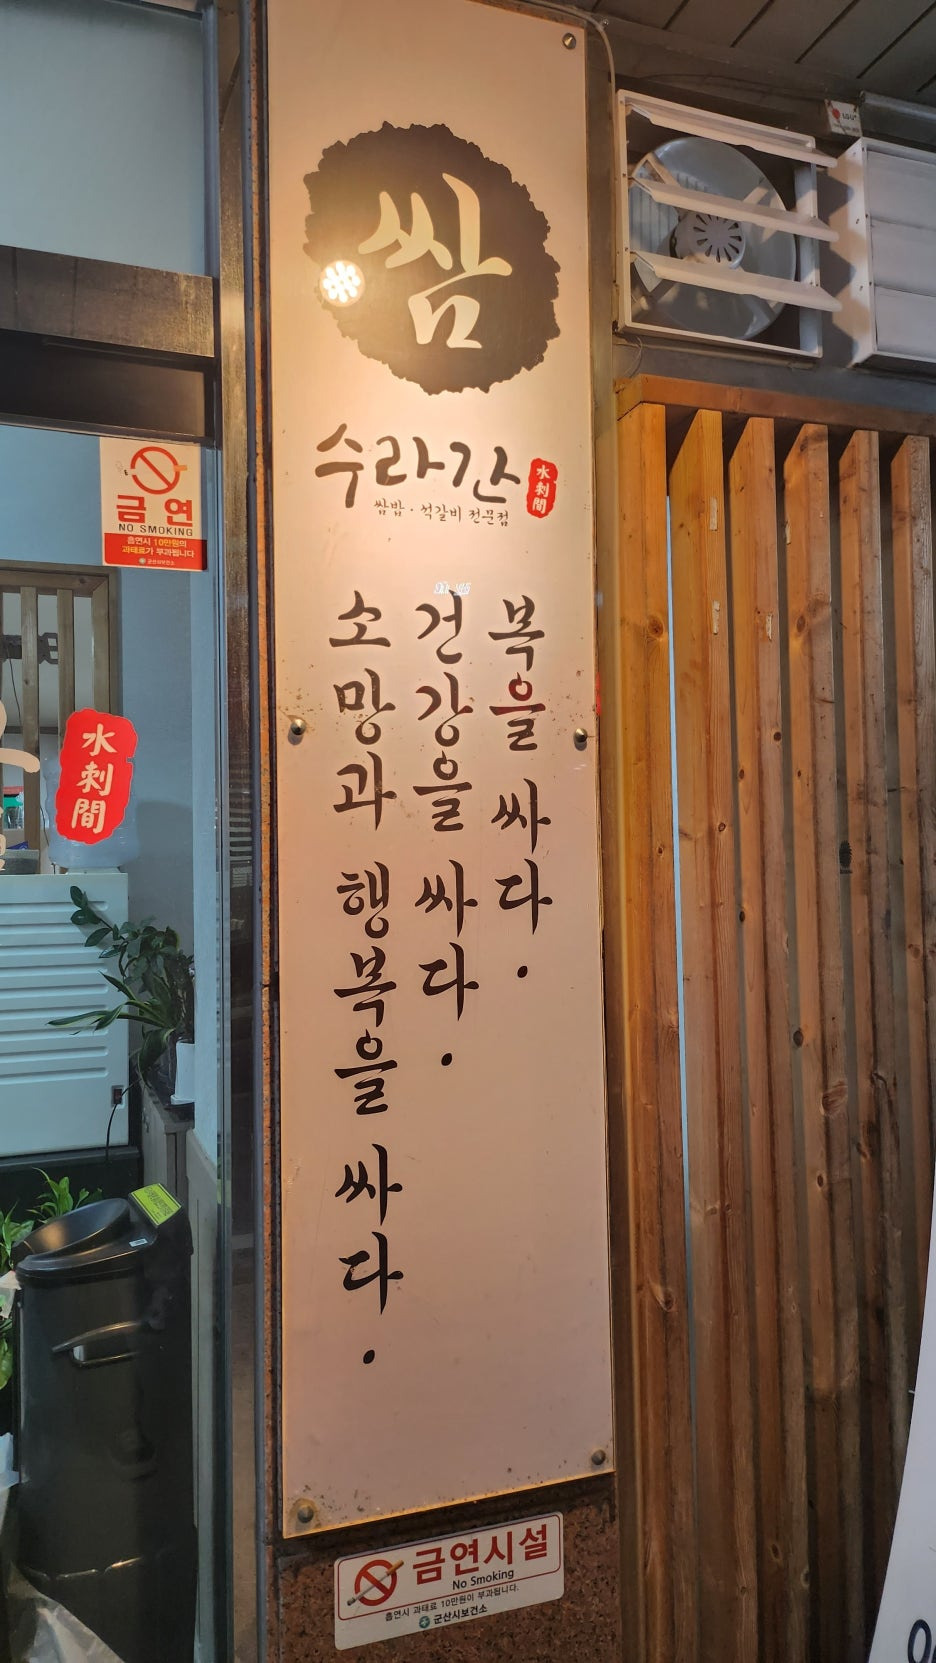 쌈
수라간
水剌間
쌈밥 · 석갈비 전문점
복을 싸다.
건강을 싸다.
소망과 행복을 싸다.
금연
NO SMOKING
흡연시 10만원의
과태료가 부과됩니다
군산시보건소
水剌間
금연시설
No Smoking
흡연시 과태료 10만원이 부과됩니다.
군산시보건소
LG U+